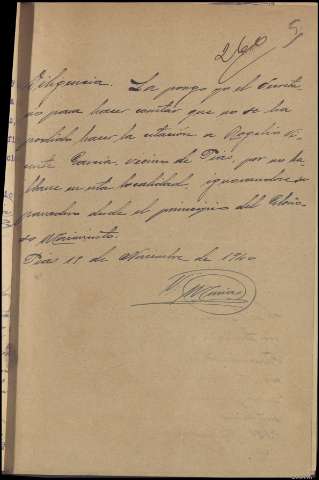 Diligencia. La pongo yo el Secreta
rio para hacer constar que no se ha
podido hacer la citación a Rogelio Vi
cente García, vecino de Pias, por no ha
llarse en esta localidad, ignorandose su
paradero desde el principio del Glorio
so Movimiento.
Pias 11 de Noviembre de 1940